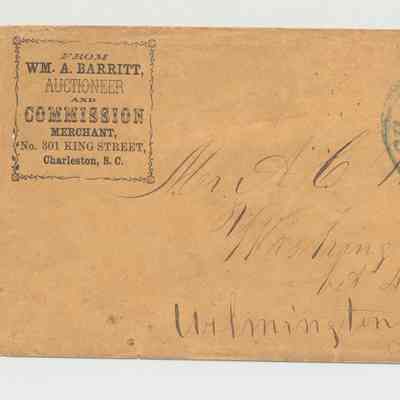 FROM
WM. A. BARRITT,
AUCTIONEER
AND
COMMISSION
MERCHANT,
No. 301 KING STREET,
Charleston, S. C.
Mr. A C
Washing
Wilmington